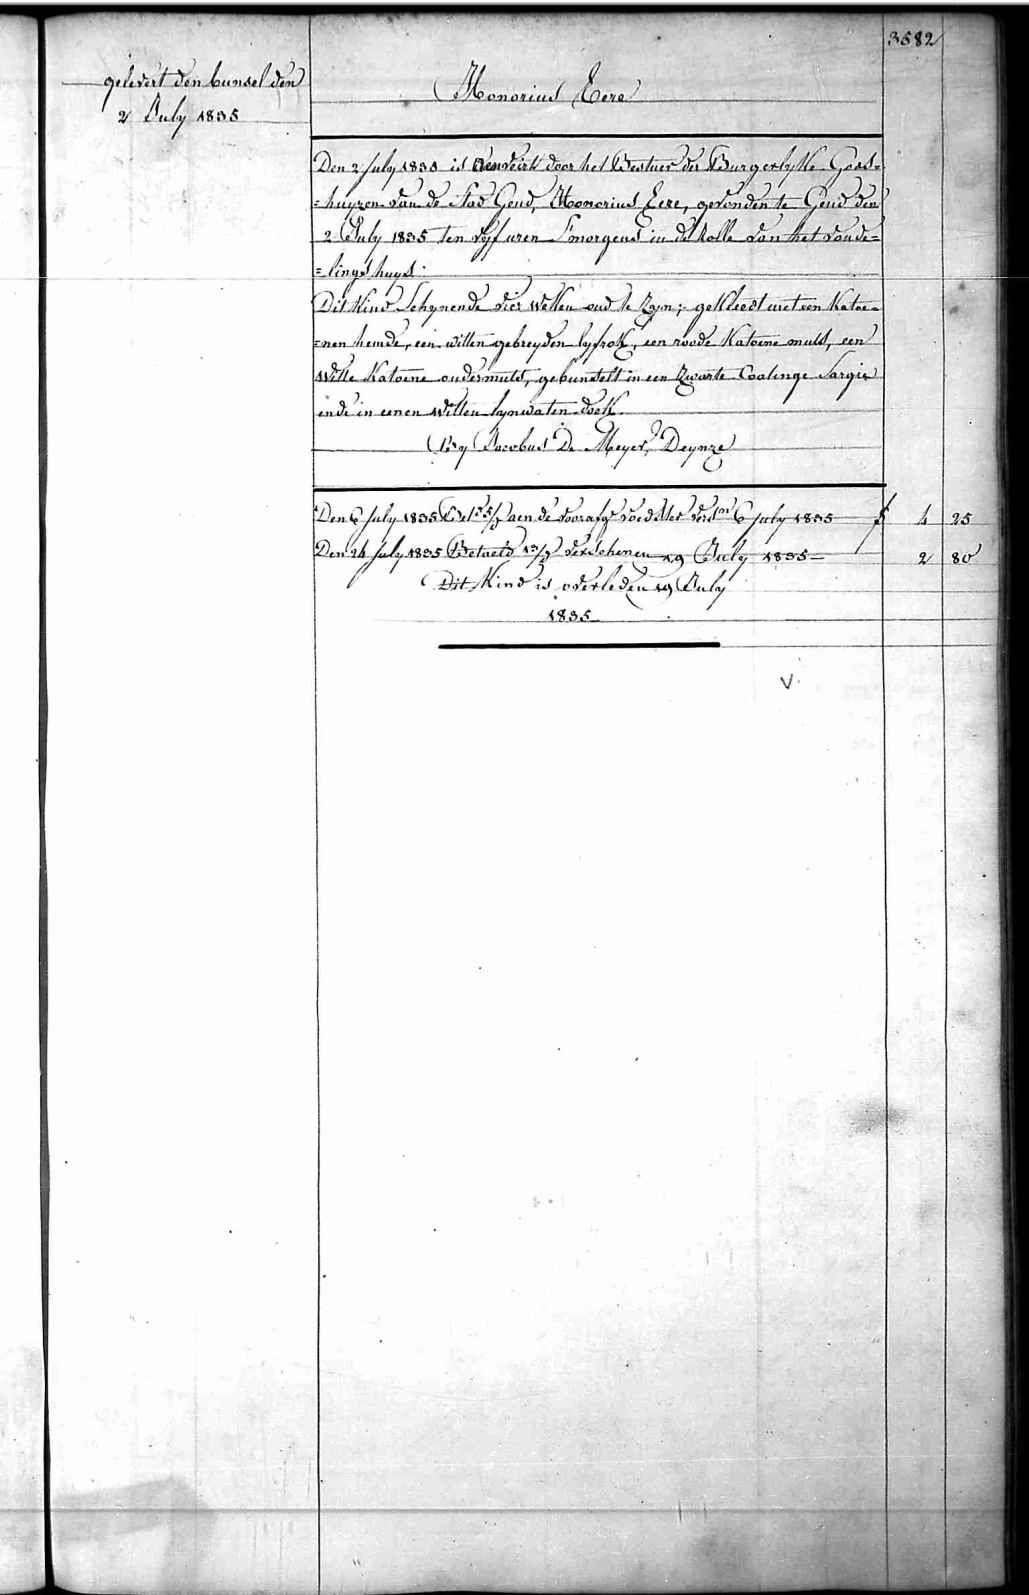 3582
gelevert den bunsel den
2 July 1835
Honorius Eere
Den 2 July 1835 is aenveirt door het Bestuer der Burgerlyke Gods=
=huyzen van de Stad Gend, Honorius Eere, gevonden te Gend den
2 July 1835 ten vyf uren S'morgens in de Rolle van het vonde=
=lings huys.
Dit Kind Schynende vier weken oud te Zyn; gekleed met een Katoe=
=nen hemde, een witten gebreyden lyfrok, een roode Katoene muts, een
Witte Katoene ondermuts, gebunselt in een Zwarte Coatinge Sargie
ende in eenen Witten lynwaten doek.
By Jacobus De Meyer, Deynze
Den 6 July 1835 aen de voorafge voedster 6 July 1835 f 4 25
Den 24 July 1835 Betaeld 13/ verschenen 19 July 1835 — 2 80
Dit Kind is overleden 19 July
1835
V.